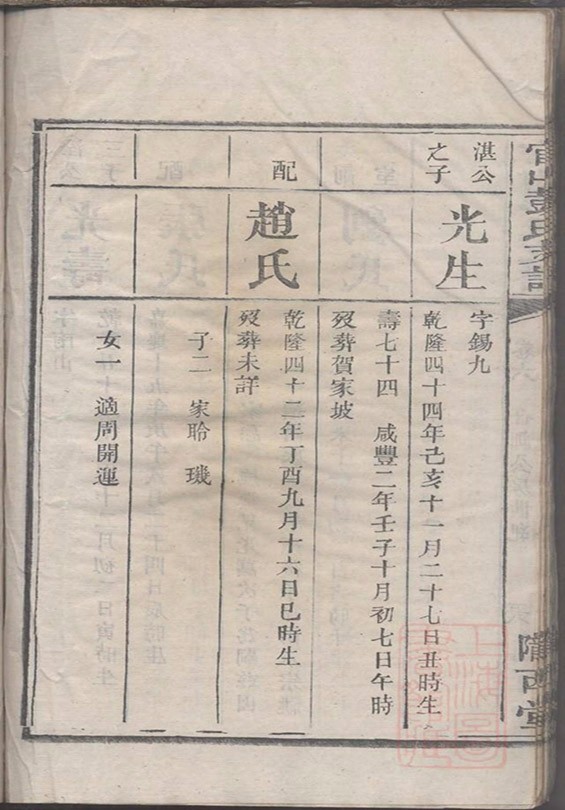 湛公
之子
光生
字錫九
乾隆四十四年己亥十一月二十七日丑時生
壽七十四　咸豐二年壬子十月初七日午時
歿葬賀家坡
配
趙氏
乾隆四十二年丁酉九月十六日巳時生
歿葬未詳
子二　家聆　璣
女一　適周開運
隴西堂